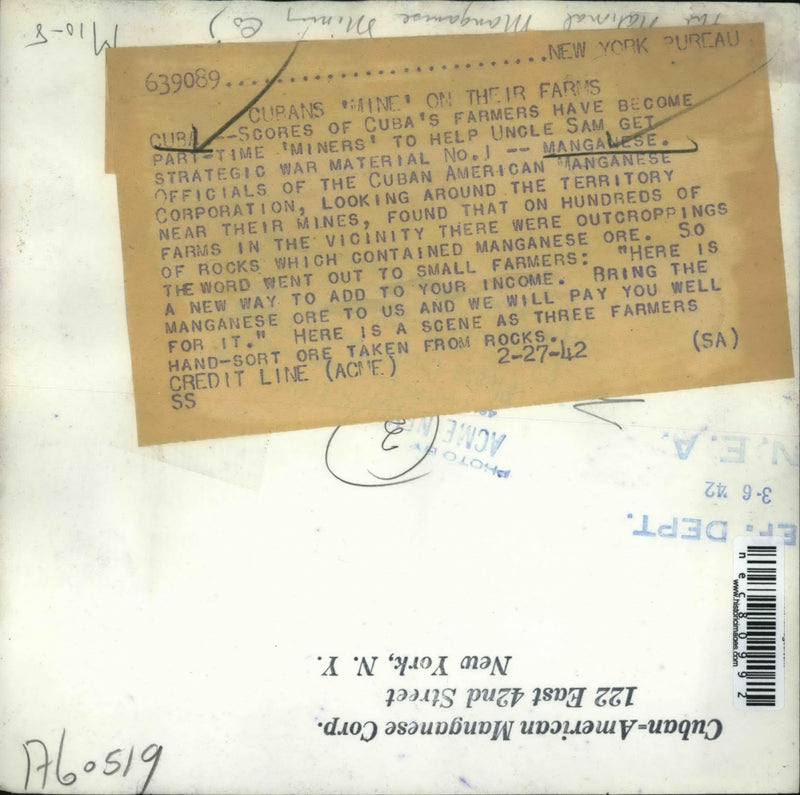 M10-8
The National Manganese Mining Co)
639089..............................NEW YORK BUREAU
CUBANS 'MINE' ON THEIR FARMS
CUBA --SCORES OF CUBA'S FARMERS HAVE BECOME
PART-TIME 'MINERS' TO HELP UNCLE SAM GET
STRATEGIC WAR MATERIAL NO.1 -- MANGANESE.
OFFICIALS OF THE CUBAN AMERICAN MANGANESE
CORPORATION, LOOKING AROUND THE TERRITORY
NEAR THEIR MINES, FOUND THAT ON HUNDREDS OF
FARMS IN THE VICINITY THERE WERE OUTCROPPINGS
OF ROCKS WHICH CONTAINED MANGANESE ORE. SO
THE WORD WENT OUT TO SMALL FARMERS: "HERE IS
A NEW WAY TO ADD TO YOUR INCOME. BRING THE
MANGANESE ORE TO US AND WE WILL PAY YOU WELL
FOR IT." HERE IS A SCENE AS THREE FARMERS
HAND-SORT ORE TAKEN FROM ROCKS.
CREDIT LINE (ACME) 2-27-42 (SA)
SS
2
PHOTO BY
ACME NE
N.E.A.
3-6 42
EF. DEPT.
nec80992
www.historicimages.com
Cuban-American Manganese Corp.
122 East 42nd Street
New York, N. Y.
A60519